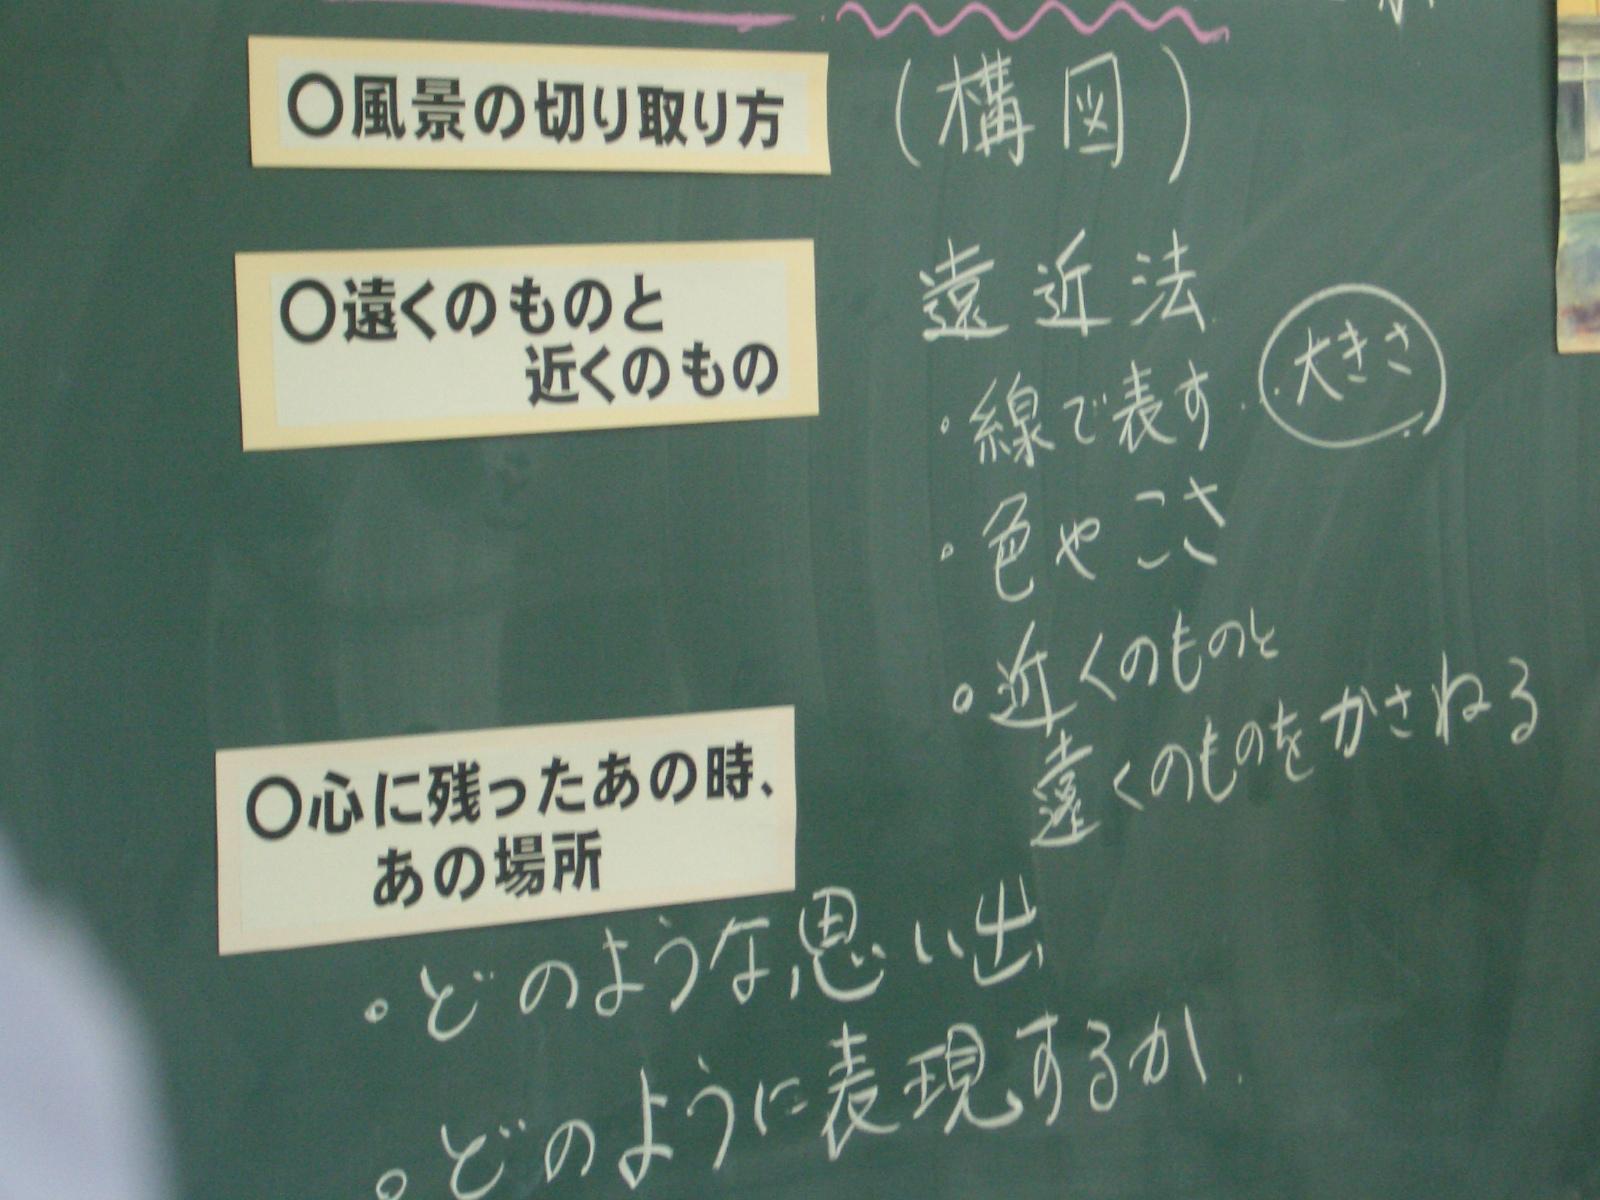 ○風景の切り取り方
(構図)
○遠くのものと
近くのもの
遠近法
・線で表す
大きさ
・色やこさ
・近くのものと
遠くのものをかさねる
○心に残ったあの時、
あの場所
・どのような思い出
・どのように表現するか